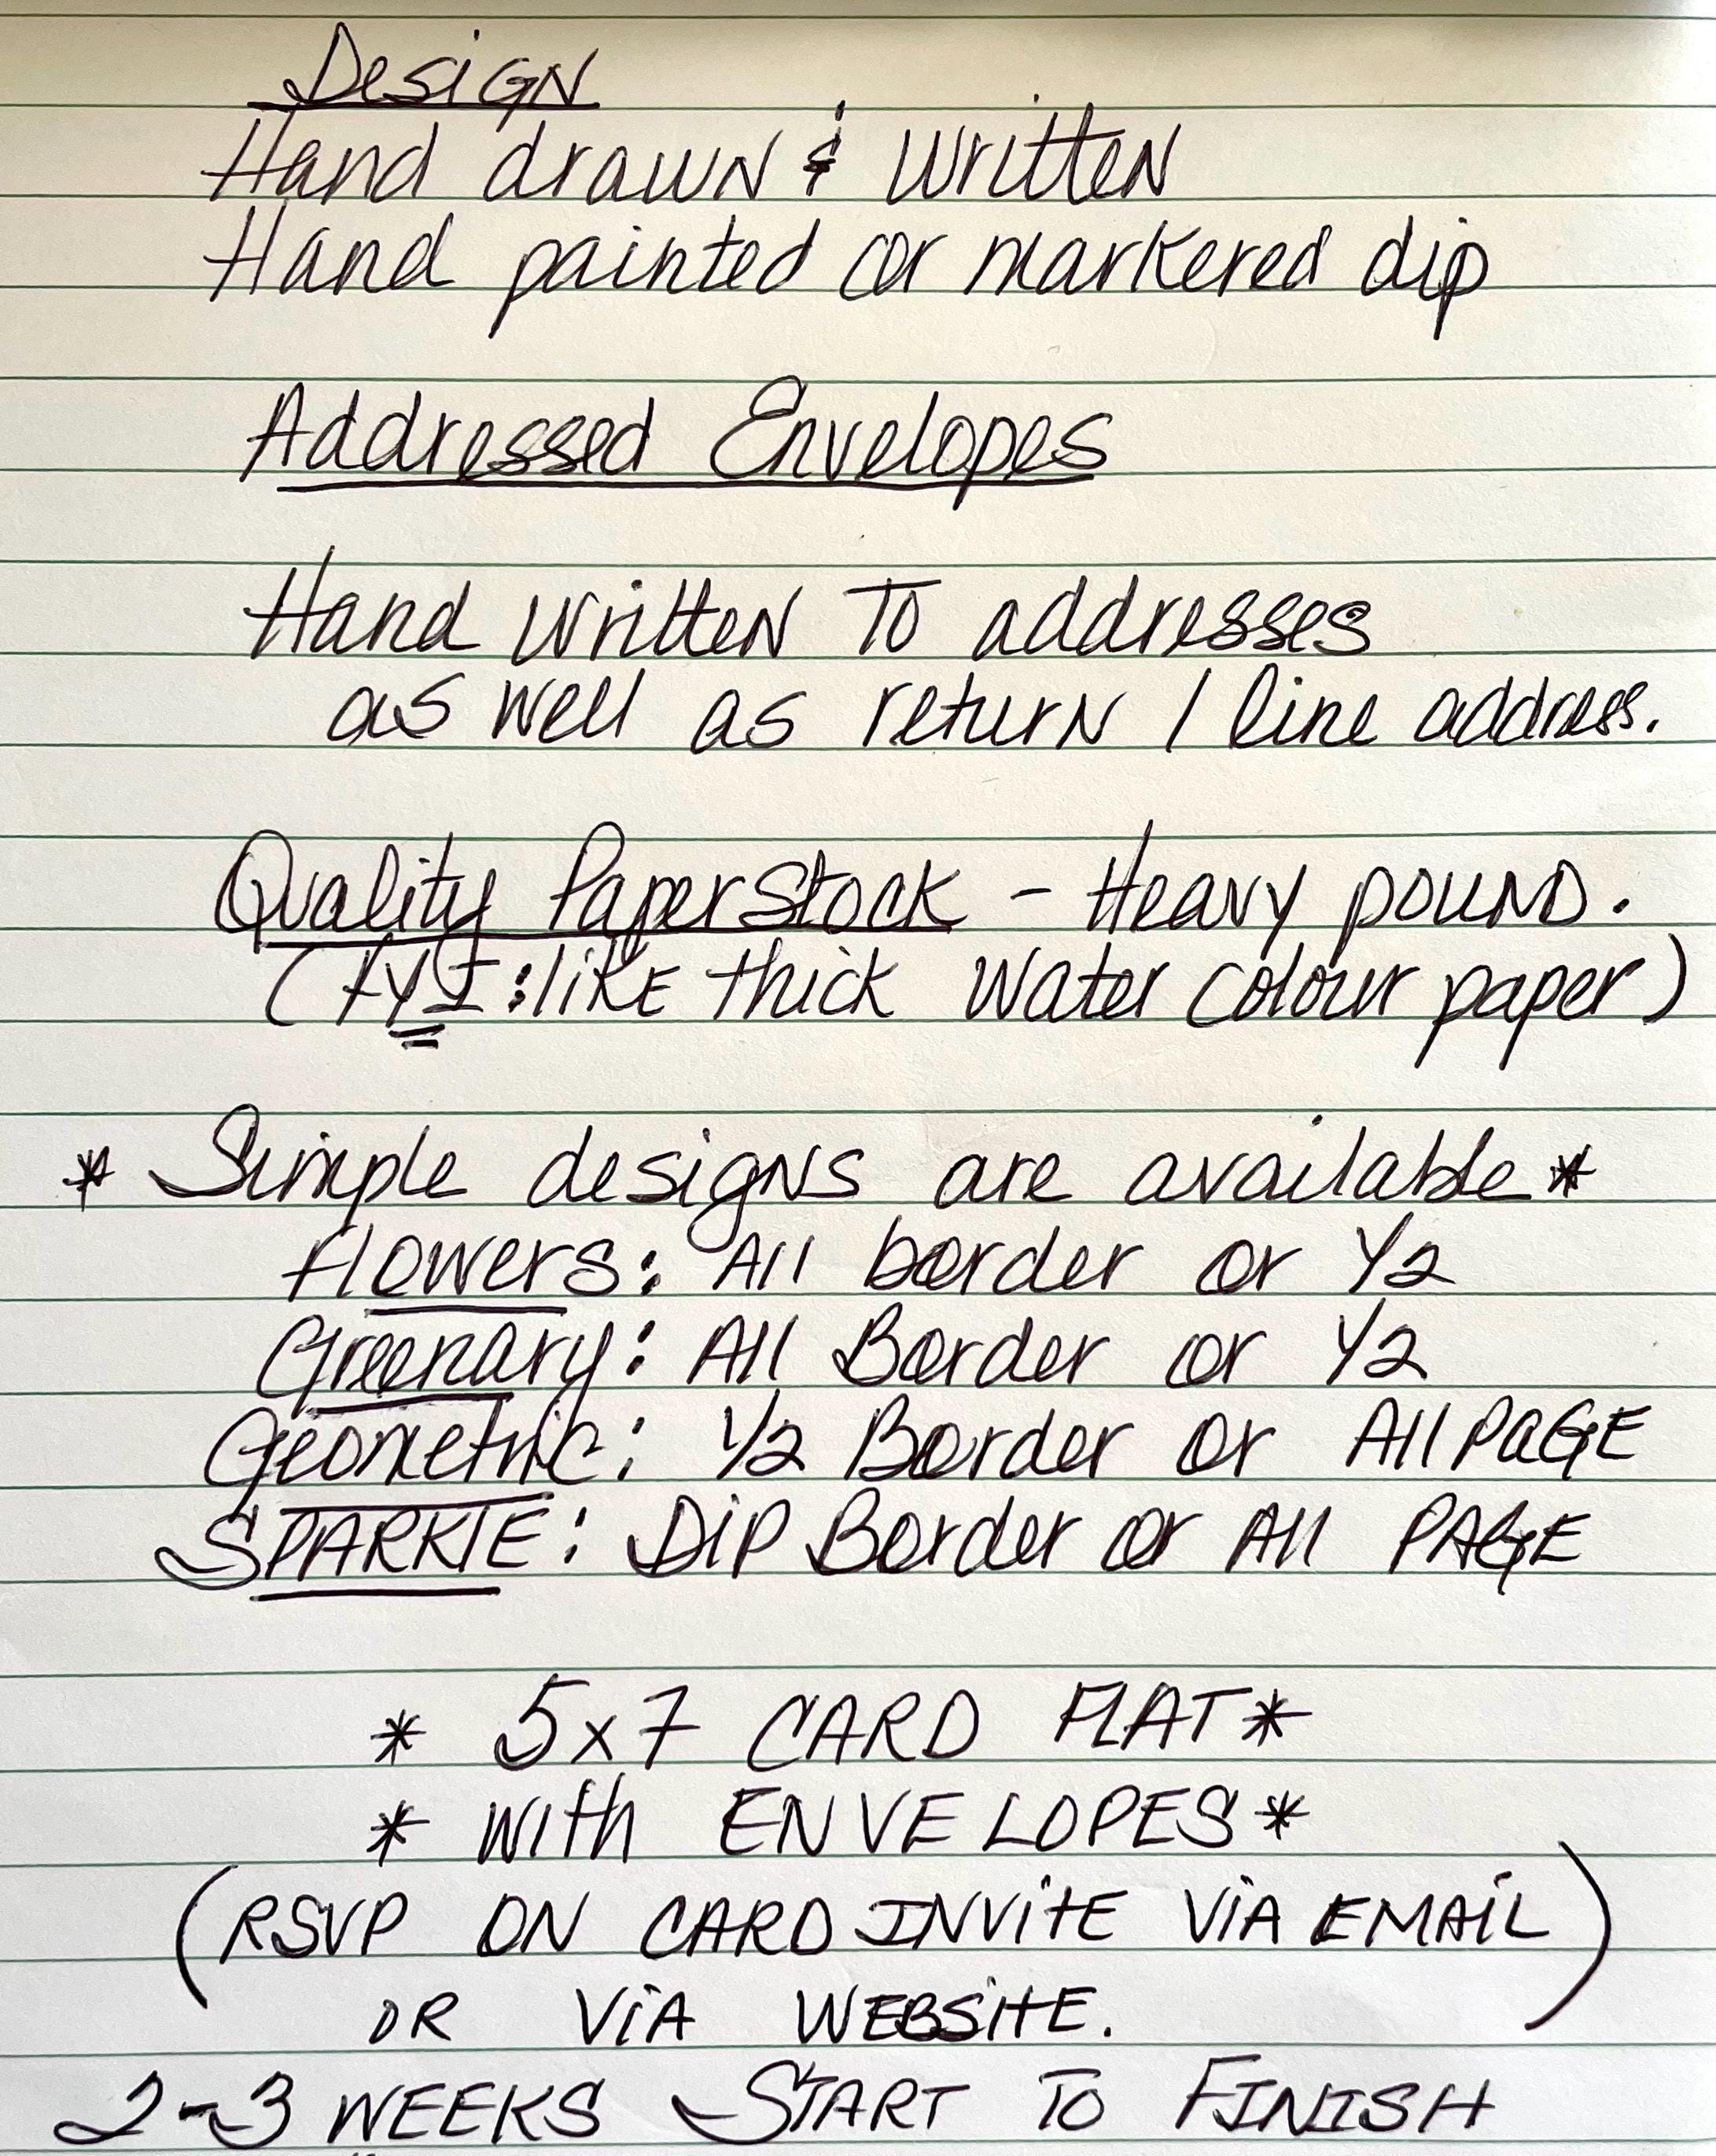 Design
Hand drawn & written
Hand painted or markered dip
Addressed Envelopes
Hand written To addresses
as well as return 1 line address.
Quality Paper Stock - Heavy pound.
(FYI: like thick water colour paper)
* Simple designs are available *
Flowers: All border or 1/2
Greenary: All Border or 1/2
Geometric: 1/2 Border or All PaGE
SPARKlE: Dip Border or All PAGE
* 5x7 CARD FLAT *
* with ENVELOPES *
(RSVP ON CARD INVitE ViA EMAiL)
OR ViA WEBSitE.
2-3 WEEKS START TO FINISH